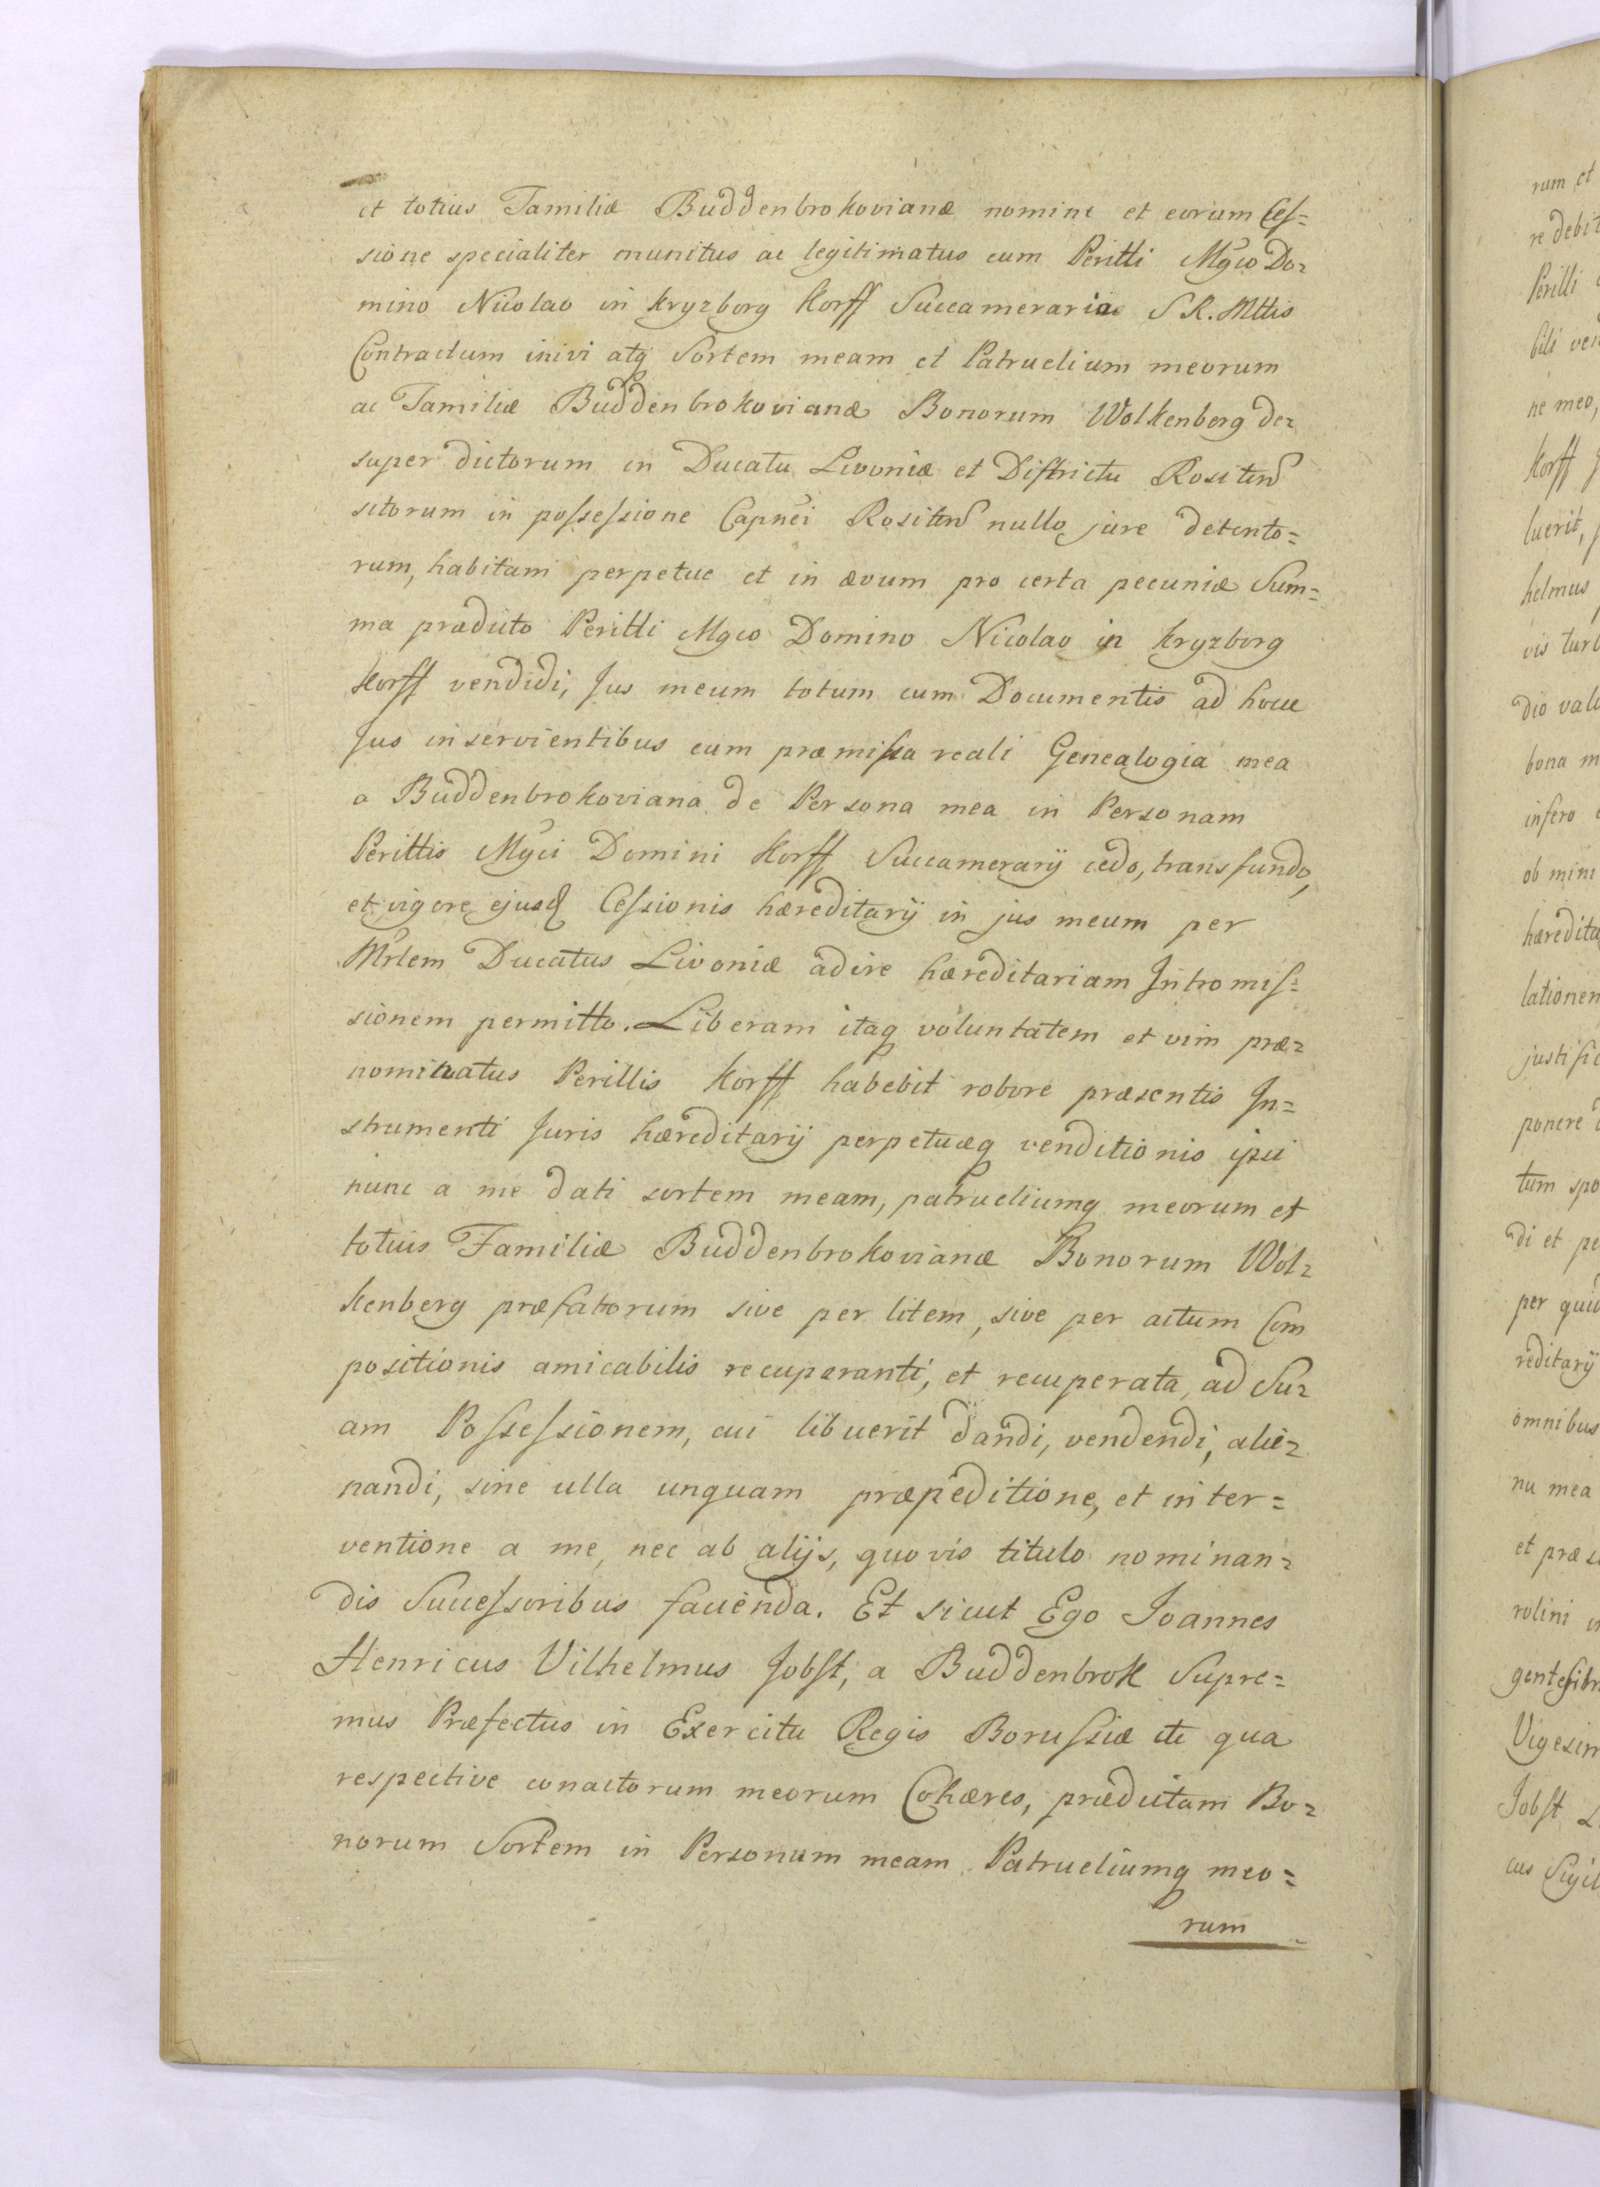 et totius Familiæ Buddenbrokovianæ nomine et eorum Ces=
sione specialiter munitus ac legitimatus cum Perilli Mgco Do=
mino Nicolao in Kryzborg Korff Succamerario S R. Mttis
Contractum inivi atq Sortem meam et Patruelium meorum
ac Familiæ Buddenbrokovianæ Bonorum Wolkenberg de=
super dictorum in Ducatu Livoniæ et Districtu Rositen
sitorum in possessione Capnei Rositen nullo jure detento=
rum, habitam perpetue et in ævum pro certa pecuniæ Sum=
ma prædicto Perilli Mgco Domino Nicolao in Kryzborg
Korff vendidi, Jus meum totum cum Documentis ad hocce
Jus inservientibus cum præmissa reali Genealogia mea
a Buddenbrokoviana de Persona mea in Personam
Perillis Mgci Domini Korff Succamerarij cedo, transfundo,
et vigore ejusd Cessionis hæreditarij in jus meum per
Mrlem Ducatus Livoniæ adire hæreditariam Intromis=
sionem permitto. Liberam itaq voluntatem et vim præ=
nominatus Perillis Korff habebit robore præsentis In=
strumenti Juris hæreditarij perpetuæq venditionis ipsi
nunc a me dati sortem meam, patrueliumq meorum et
totius Familiæ Buddenbrokovianæ Bonorum Wol=
kenberg præfatorum sive per litem, sive per actum Com
positionis amicabilis recuperanti, et recuperata ad Su=
am Possessionem, cui libuerit dandi, vendendi, alie=
nandi, sine ulla unquam præpeditione, et inter=
ventione a me, nec ab alijs, quovis titulo nominan=
dis Successoribus facienda. Et sicut Ego Joannes
Henricus Vilhelmus Jobst, a Buddenbrok Supre=
mus Præfectus in Exercitu Regis Borussiæ et qua
respective conactorum meorum Cohæres, prædictam Bo=
norum Sortem in Personum meam Patrueliumq meo=
rum